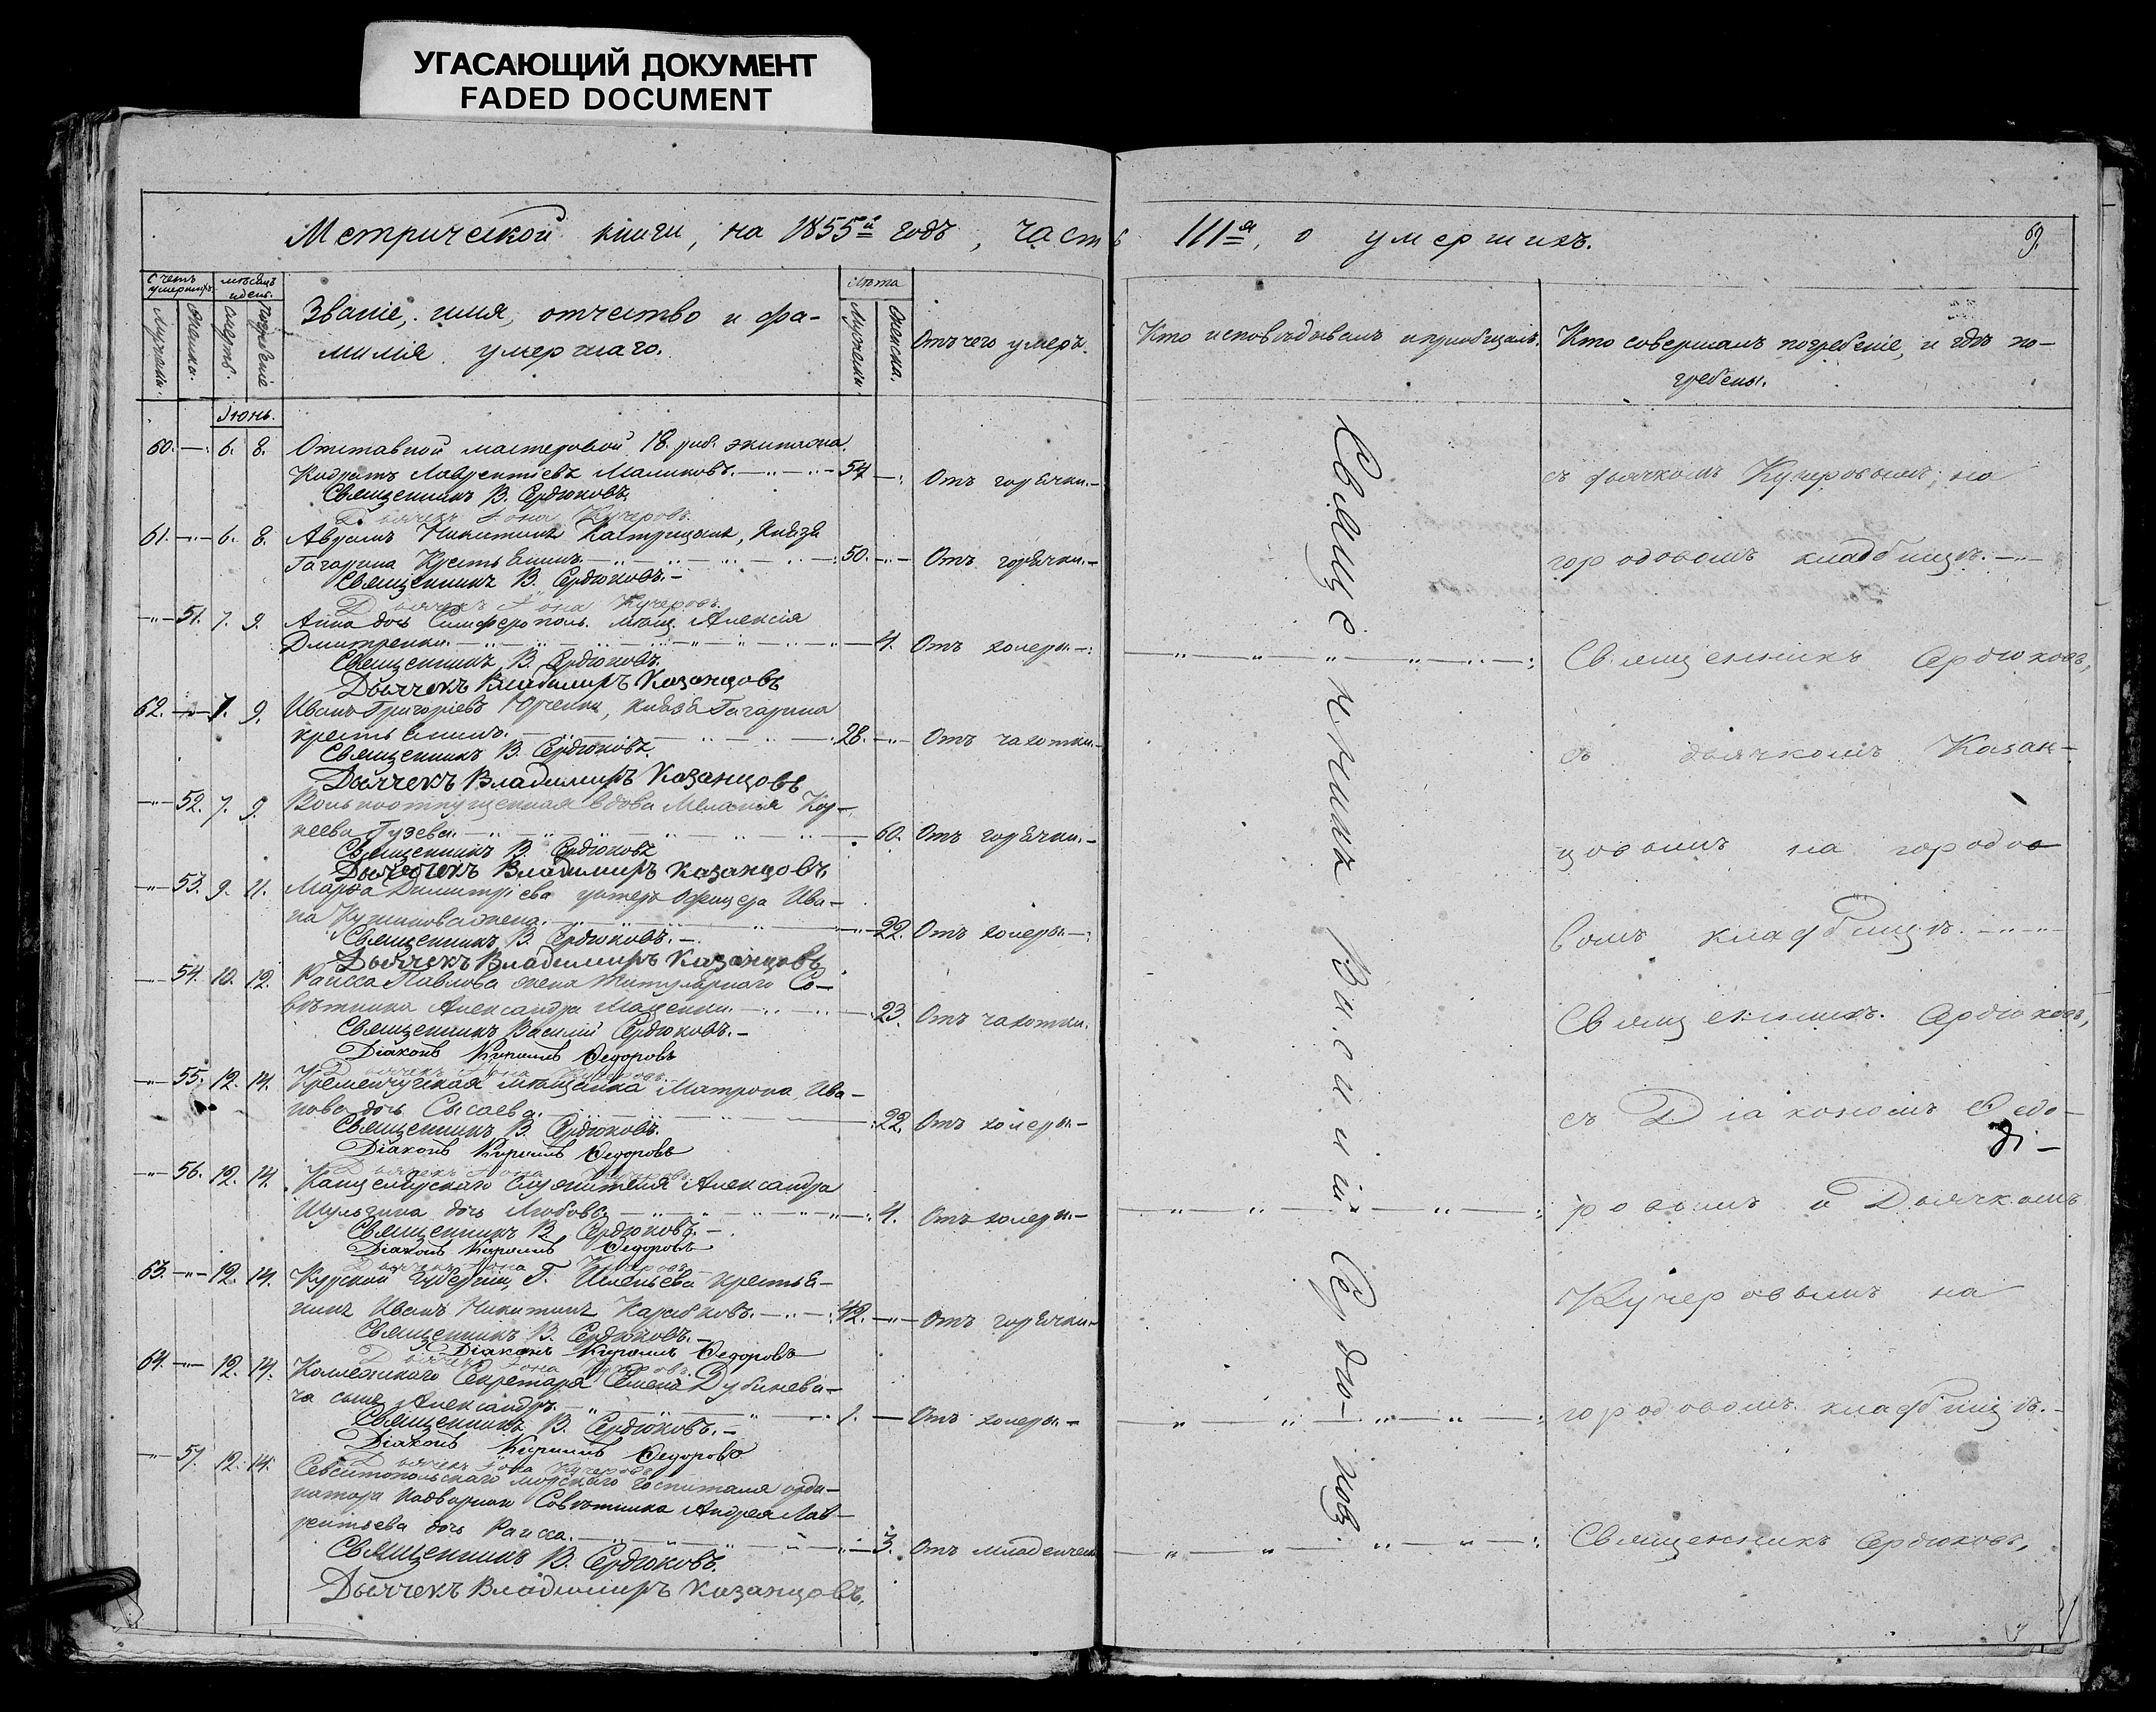 УГАСАЮЩИЙ ДОКУМЕНТ
FADED DOCUMENT
Метрической книги, на 1855й годъ, часть IIIя, о умершихъ.
69.
Счетъ умершихъ.
Мужеска.
Женска.
Мѣсяцъ и день.
смерть.
погребеніе
Званіе, имя, отчество и фа-
милія умершаго.
Лѣта
Мужеска.
Женска.
Отъ чего умеръ.
Кто исповѣдывалъ и пріобщалъ.
Кто совершалъ погребеніе, и гдѣ по-
гребены.
Іюнь.
60. — 6. 8. Отставной мастеровой 18. раб. экипажа
Кодратъ Лаврентіевъ Маликовъ. 54 Отъ горячки.
Священникъ В. Сердюковъ.
Дьячекъ Іона Кучеровъ.
61. — 6. 8. Аврамъ Никитинъ Кастрицынъ, Князя
Гагарина Крестьянинъ. 50. Отъ горячки.
Священникъ В. Сердюковъ.
Дьячекъ Іона Кучеровъ.
— 51. 7. 9. Анна дочь Симферополь. мѣщ. Алексія
Дмитренки. 4. Отъ холеры.
Священникъ В. Сердюковъ.
Дьячекъ Владимиръ Казанцовъ
62. — 7. 9. Иванъ Григоріевъ Юрченко, Князя Гагарина
крестьянинъ. 28. Отъ чахотки.
Священникъ В. Сердюковъ.
Дьячекъ Владимиръ Казанцовъ
— 52. 7. 9. Вольноотпущенная вдова Меланія Кор-
неева Гузева. 60. Отъ горячки.
Священникъ В. Сердюковъ
Дьячекъ Владимиръ Казанцовъ
— 53. 9. 11. Марѳа Димитріева унтеръ офицера Ива-
на жена. 22. Отъ холеры.
Священникъ В. Сердюковъ.
Дьячекъ Владимиръ Казанцовъ
— 54. 10. 12. Раисса Павлова жена Титулярнаго Со-
вѣтника Александра Маценки. 23. Отъ чахотки.
Священникъ Василій Сердюковъ.
Діаконъ Кириллъ Ѳедоровъ
Дьячекъ Іона Кучеровъ.
— 55. 12. 14. Кременчугская мѣщанка Матрона Ива-
нова дочь Сысаева. 22. Отъ холеры.
Священникъ В. Сердюковъ.
Діаконъ Кириллъ Ѳедоровъ
Дьячекъ Іона Кучеровъ.
— 56. 12. 14. Канцелярскаго Служителя Александра
Шульгина дочь Любовь. 4. Отъ холеры.
Священникъ В. Сердюковъ.
Діаконъ Кириллъ Ѳедоровъ
Дьячекъ Іона Кучеровъ
63. — 12. 14. Курской Губерніи, Г. крестья-
нинъ Иванъ Никитинъ 42. Отъ горячки
Священникъ В. Сердюковъ.
Діаконъ Кириллъ Ѳедоровъ
Дьячекъ Іона Кучеровъ
64. — 12. 14. Коллежскаго Секретаря Семена Дубиневи-
ча сынъ Александръ. 1. Отъ холеры.
Священникъ В. Сердюковъ.
Діаконъ Кириллъ Ѳедоровъ
Дьячекъ Іона Кучеровъ
— 57. 12. 14. Севастопольскаго морскаго госпиталя орди-
натора Надворнаго Совѣтника Андрея Лав-
рентьева дочь Раисса. 3. Отъ младенческ
Священникъ В. Сердюковъ.
Дьячекъ Владимиръ Казанцовъ.
Священникъ Василій Сердюковъ.
съ дьячкомъ Кучеровымъ, на
городовомъ кладбищѣ.
Священникъ Сердюковъ,
съ дьячкомъ Казан-
цовымъ на городо
вомъ кладбищѣ.
Священникъ Сердюковъ,
съ Діакономъ Ѳедо-
ровымъ и Дьячкомъ
Кучеровымъ на
городовомъ кладбищѣ.
Священникъ Сердюковъ,